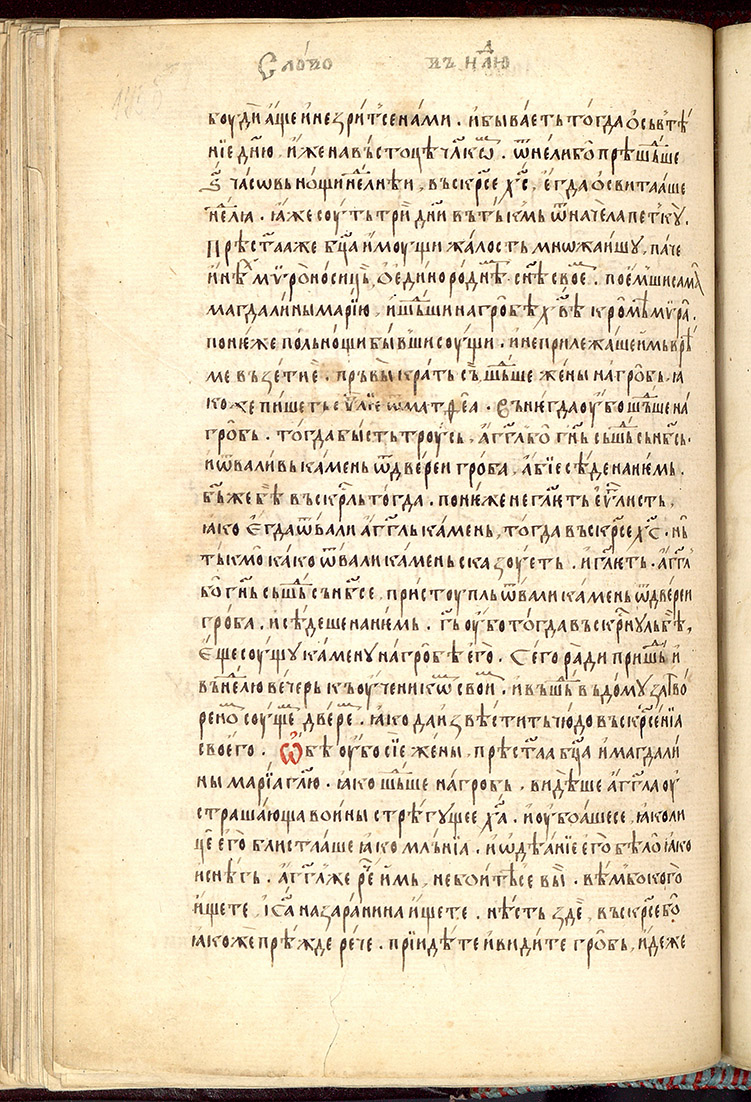 Сло́во въ нⷣлю
боуди а́ще и҆ не зри́тсе на́ми . и҆ бы́ваѥть то́гда ѻ҆свѣтѣ́
нїе дн҃ю , и҆же на въсто́цѣ чл҃кѡⷨ . ѿ не́либо прѣ́шⷣьше
ѕ҃ часѡⷡ҇ь но́щи нⷣе́лнѥи , въскр҃се хс҃ , ѥ҆гда ѻ҆свитааше
нⷣе́лꙗ . ꙗ҆́же соу́ть трӥ дн҃и въ ты́кмь ѿ наче́ла пе́тку .
Прѣст҃аа же бц҃а и҆моущи жа́лость мнѡжаи́шу , па́че
и҆нѣⷯ мѵ̈роно́сиць , ѻ҆ ѥ҆дино́роднѣⷨ сн҃ѣ своеⷨ . поѥ́мши самꙋ
магдали́ны марі́ю , и҆ шⷣьши на гро́бѣ хв҃ѣ кромѣ́ мѵ̈ра .
поню́же польно́щи бы́вши соу́щи . и҆ не прилежа́ше и҆мь врѣ́
ме възе́тиѥ . пръ́вы кра́ть сⷣь шⷣьше же́ны на гро́бь . ꙗ
ко же пи́шеть ѥѵ҃лїе ѿ матѳе́а . Вънѥгда оу҆бо шⷣьше на
гро́бь . то́гда бы́сть троу́сь , а҆гг҃ль бо гн҃ь сьшⷣь сь нб҃сь .
и҆ ѿвали́вь ка́мень ѿ две́реи гро́ба . а҆бїе сѣ́де на ни́ѥмь .
бъ҃ же бѣ̀ въскр҃ль то́гда . поню́же не гл҃ѥть ѥѵ҃ли́сть ,
ꙗко ѥ҆гда ѿвали а҆гг҃ль ка́мень , то́гда въскр҃се хс҃ . нѡ̀
ты́кмо ка́ко ѿвали ка́мень ска́зоуѥть . и҆ гл҃ѥть . а҆гг҃ль
бо гн҃ь сьшⷣь сь нб҃се , присту́пль ѿвали ка́мень ѿ две́реи
гро́ба . и҆ сѣ́деше на ни́ѥмь . гь҃ оу҆бо то́гда въскрⷭ҇нулъ бѣ̀ ,
Ѥ҆ще соу́щу ка́мену на гро́бѣ ѥ҆го̀ . Сего ра́ди пришⷣь и҆
въ нⷣе́лю ве́черь къ оу҆че́никѡⷨ своиⷨ . и҆ въшⷣь въ до́му за́тво
ре́ноⷨ соу́щеⷨ две́реⷨ . ꙗко да и҆звѣ́стить чю́до въскр҃се́нїа
своего̀ . Ѡ҆бѣ̀ оу҆бо сїе же́ны , прѣст҃аа бц҃а и҆ магдали́
ны марі́а гл҃ю . ꙗко шⷣьше на гробь , ви́дѣше а҆гг҃ла оу҆
страша́юща во́ины стрѣ́гущее хⷭ҇а . и҆ оу҆боа́шесе , ꙗко ли
це̏ ѥ҆го̀ бли́стлаше ꙗко мль́нїа . и҆ ѡ҆дѣ́анїе ѥ҆го̀ бѣло ꙗко
и҆ снѣ́гь . а҆гг҃ла же рⷱ҇е и҆мь , не бои́тѣ се вы̏ . вѣ́мь бо кого̀
и҆щете , і҆са҃ назара́нина и҆щете . нѣ́сть зде̏ , въскр҃се бо̀ .
ꙗко же прѣ́жде рече . прїидѣ́те и҆ ви́дите гро́бь , и҆де́же